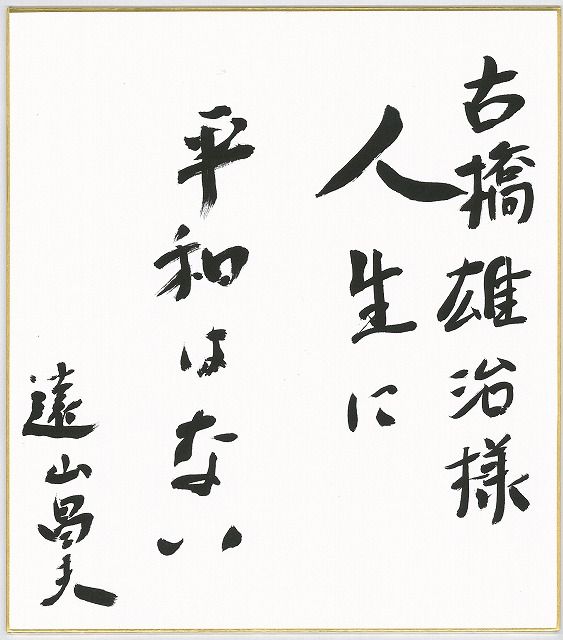 古橋雄治様
人生に
平和はない
遠山昌夫